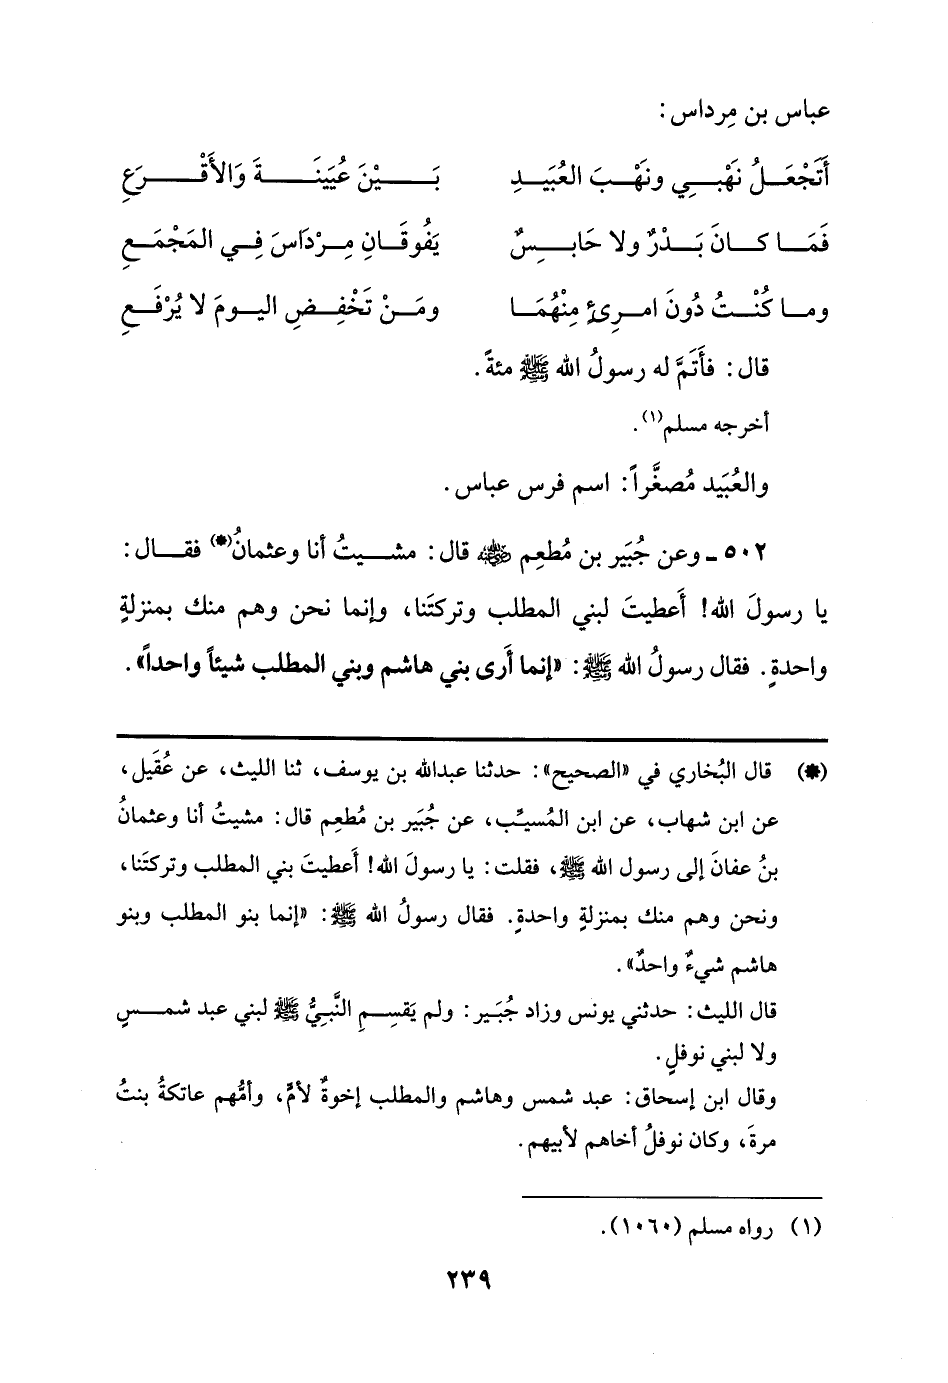 عباس بن مِرداس:
أَتَجْعَـلُ نَهْبِـي ونَهْـبَ العُبَيـدِ بَـيْنَ عُيَينَـةَ وَالأَقْـرَعِ
فَمَـا كـانَ بَـدْرٌ ولا حَابِـسٌ يَفُوقَـانِ مِـرْدَاسَ فِـي المَجْمَـعِ
ومـا كُنْـتُ دُونَ امـرِئٍ مِنْهُمَـا ومَـنْ تَخْفِـضِ اليـومَ لا يُرْفَـعِ
قال: فأَتَمَّ له رسولُ الله ﷺ مئةً.
أخرجه مسلم(١).
والعُبَيد مُصغَّراً: اسم فرس عباس.
٥٠٢ ـ وعن جُبَير بن مُطعِم رضي الله عنه قال: مشـيتُ أنا وعثمانُ(*) فقـال:
يا رسولَ الله! أَعطيتَ لبني المطلب وتركتَنا، وإنما نحن وهم منك بمنزلةٍ
واحدةٍ. فقال رسولُ الله ﷺ: «إنما أَرى بني هاشم وبني المطلب شيئاً واحداً».
(*) قال البُخاري في «الصحيح»: حدثنا عبدالله بن يوسف، ثنا الليث، عن عُقَيل،
عن ابن شهاب، عن ابن المُسيّب، عن جُبَير بن مُطعِم قال: مشيتُ أنا وعثمانُ
بنُ عفانَ إلى رسول الله ﷺ، فقلت: يا رسولَ الله! أَعطيتَ بني المطلب وتركتَنا،
ونحن وهم منك بمنزلةٍ واحدةٍ. فقال رسولُ الله ﷺ: «إنما بنو المطلب وبنو
هاشم شيءٌ واحدٌ».
قال الليث: حدثني يونس وزاد جُبَير: ولم يَقسِمِ النَّبيُّ ﷺ لبني عبد شمـسٍ
ولا لبني نوفلٍ.
وقال ابن إسحاق: عبد شمس وهاشم والمطلب إخوةٌ لأمٍّ، وأمُّهم عاتكةُ بنتُ
مرةَ، وكان نوفلُ أخاهم لأبيهم.
(١) رواه مسلم (١٠٦٠).
٢٣٩